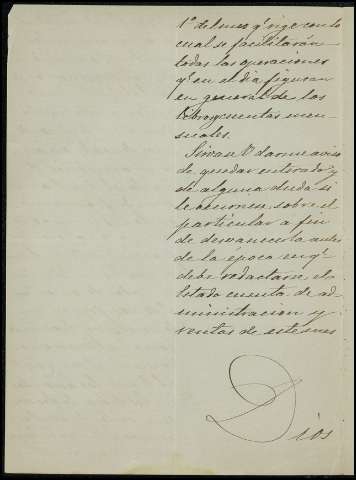 1º del mes q.e rige con lo
cual se facilitarán
todas las operaciones
q.e en el dia figuran
en general de los
libros y cuentas men-
suales.
Sirvase V. darme aviso
de quedar enterado y
de alguna duda si
le ocurriese, sobre el
particular a fin
de desvanecerla antes
de la época en q.e
debe redactarse el
Estado cuenta de ad-
ministracion y
rentas de este mes
Dios